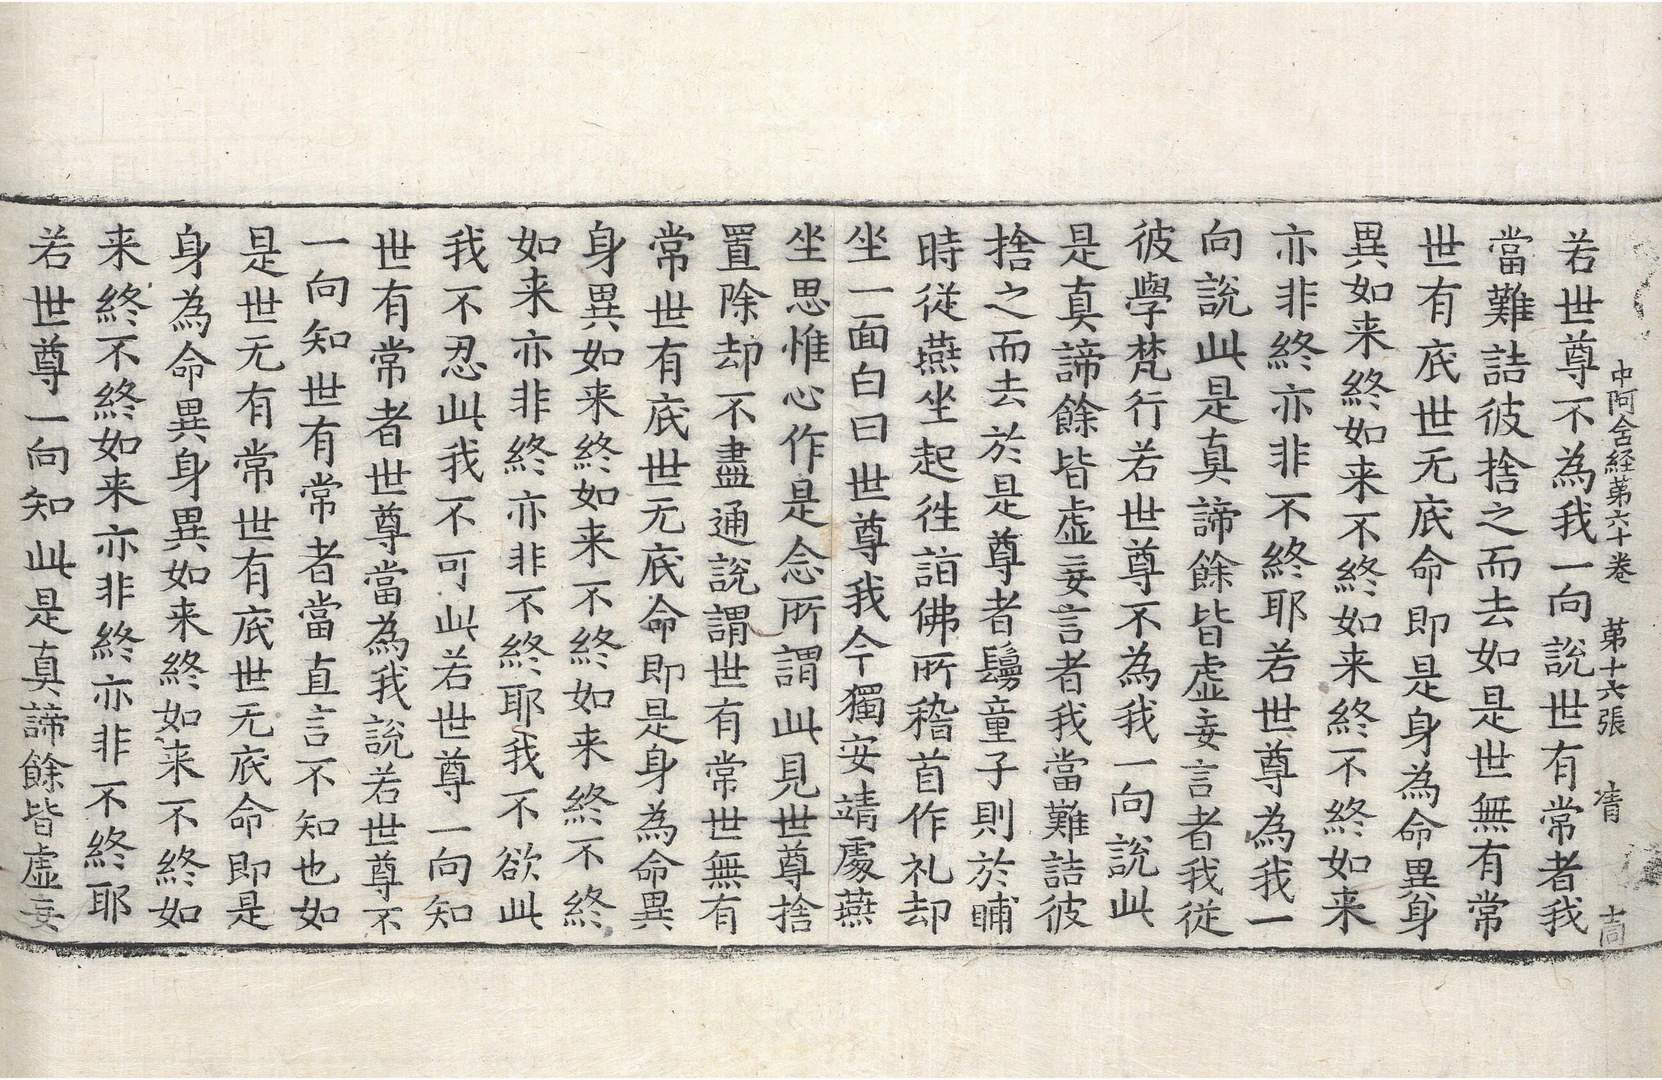 中阿含経苐六十卷　苐十六張　凊　吉同
若世尊不為我一向說世有常者我
當難詰彼捨之而去如是世無有常
世有底世无底命即是身為命異身
異如来終如来不終如来終不終如来
亦非終亦非不終耶若世尊為我一
向說此是真諦餘皆虛妄言者我從
彼學梵行若世尊不為我一向說此
是真諦餘皆虛妄言者我當難詰彼
捨之而去於是尊者鬘童子則於晡
時從燕坐起徃詣佛所稽首作礼却
坐一面白曰世尊我今獨安靖處燕
坐思惟心作是念所謂此見世尊捨
置除却不盡通說謂世有常世無有
常世有底世无底命即是身為命異
身異如来終如来不終如来終不終
如来亦非終亦非不終耶我不欲此
我不忍此我不可此若世尊一向知
世有常者世尊當為我說若世尊不
一向知世有常者當直言不知也如
是世无有常世有底世无底命即是
身為命異身異如来終如来不終如
来終不終如来亦非終亦非不終耶
若世尊一向知此是真諦餘皆虛妄